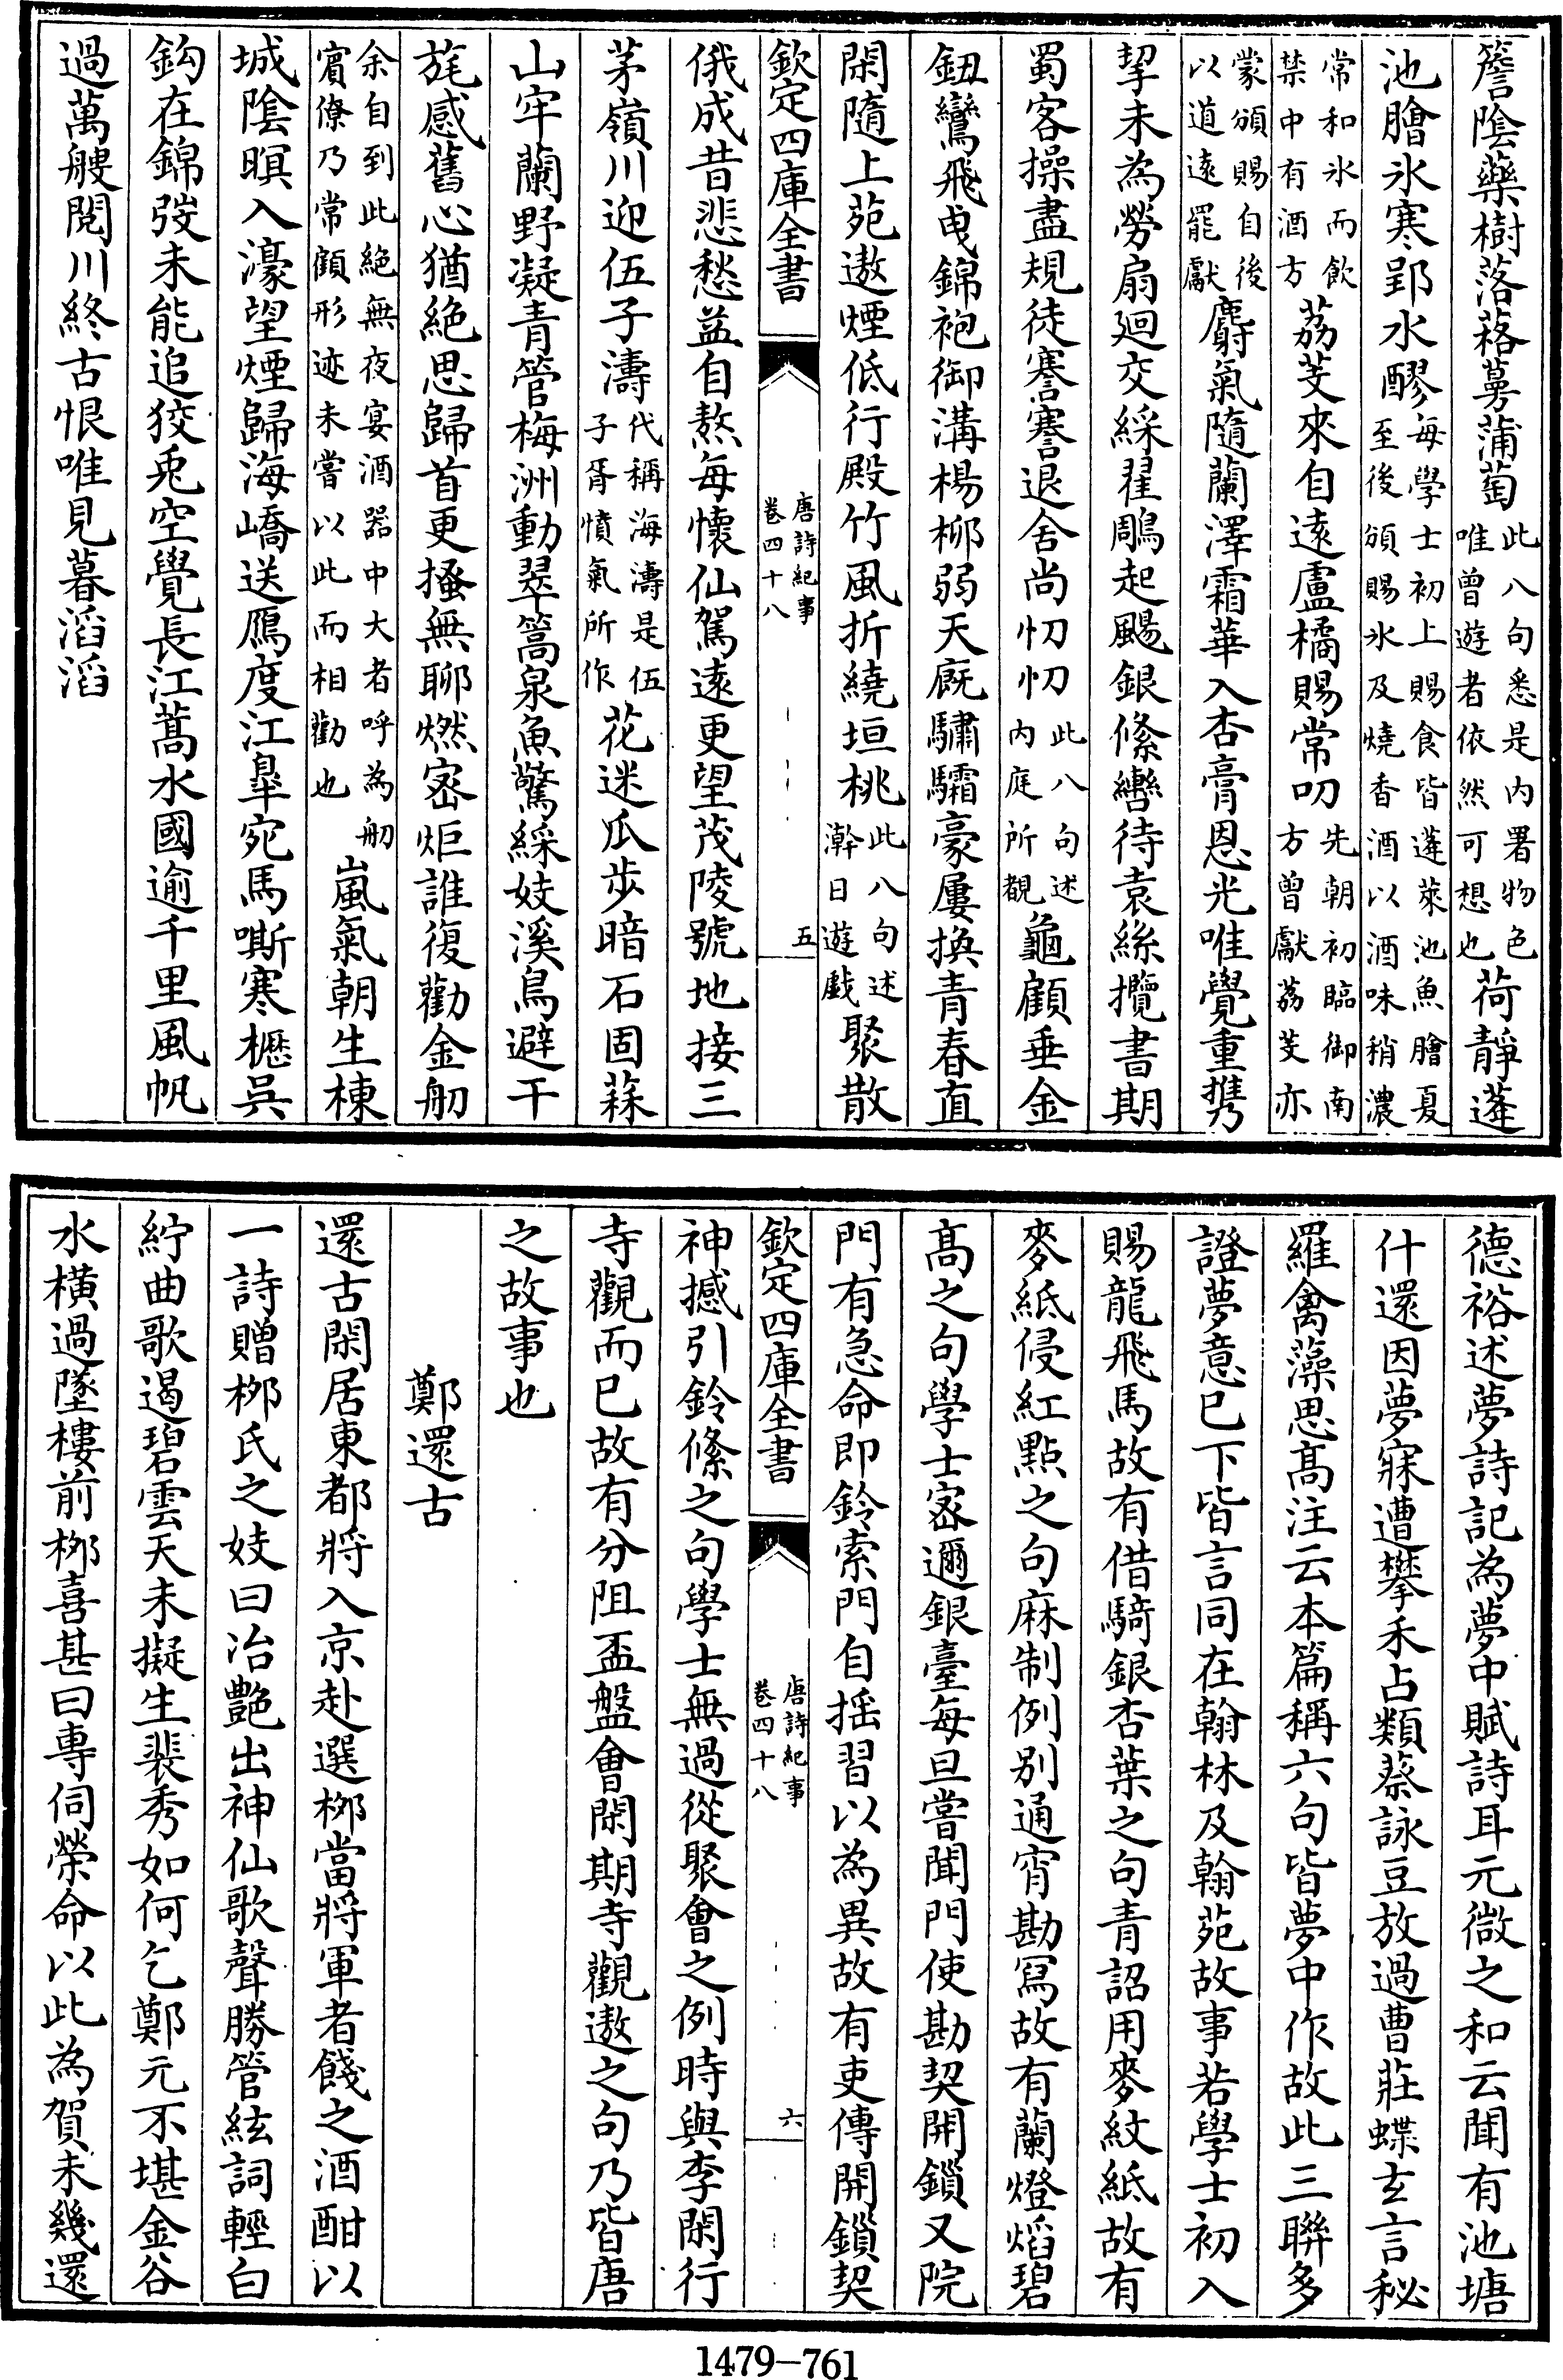 簷隂藥樹落蕗蔓蒲萄此八句悉是内署物色唯曾遊者依然可想也荷靜蓬
池膾氷寒郢水醪每學士初上賜食皆蓬萊池魚膾夏至後頒賜氷及燒香酒以酒味稍濃
常和氷而飲禁中有酒方荔芰來自遠盧橘賜常叨先朝初臨御南方曾獻荔芰亦
蒙頒賜自後以道遠罷獻麝氣隨蘭澤霜華入杏膏恩光唯覺重攜
挈未為勞扇廻交綵翟鵰起颺銀絛轡待袁絲攬書期
蜀客操盡規徒謇謇退舍尚忉忉此八句述内庭所覩龜顧垂金
鈕鸞飛曵錦袍御溝楊柳弱天廐驌驦豪屢換青春直
閑隨上苑遨煙低行殿竹風折繞垣桃此八句述澣日遊戱聚散
欽定四庫全書
唐詩紀事
卷四十八
五
俄成昔悲愁益自熬每懷仙駕遠更望茂陵號地接三
茅嶺川迎伍子濤代稱海濤是伍子胥憤氣所作花迷瓜歩暗石固蒜
山牢蘭野凝青管梅洲動翠篙泉魚驚綵妓溪鳥避干
旄感舊心猶絶思歸首更搔無聊燃宻炬誰復勸金舠
余自到此絶無夜宴酒器中大者呼為舠賓僚乃常顧形迹未嘗以此而相勸也嵐氣朝生棟
城隂暝入濠望煙歸海嶠送鴈度江臯宛馬嘶寒櫪吳
鈎在錦弢未能追狡兎空覺長江蒿水國逾千里風帆
過萬艘閱川終古恨唯見暮滔滔
德裕述夢詩記為夢中賦詩耳元微之和云聞有池塘
什還因夢寐遭攀禾占類蔡詠豆放過曹莊蝶玄言秘
羅禽藻思髙注云本篇稱六句皆夢中作故此三聯多
證夢意已下皆言同在翰林及翰苑故事若學士初入
賜龍飛馬故有借騎銀杏葉之句青詔用麥紋紙故有
麥紙侵紅點之句麻制例别通宵勘冩故有蘭燈焰碧
髙之句學士宻邇銀臺每旦嘗聞門使勘契開鎻又院
門有急命即鈴索門自揺習以為異故有吏傳開鎻契
欽定四庫全書
唐詩紀事
卷四十八
六
神撼引鈴絛之句學士無過從聚會之例時與李閑行
寺觀而已故有分阻盃盤會閑期寺觀遨之句乃皆唐
之故事也
鄭還古
還古閑居東都將入京赴選栁當將軍者餞之酒酣以
一詩贈栁氏之妓曰冶艶出神仙歌聲勝管絃詞輕白
紵曲歌遏碧雲天未擬生裴秀如何乞鄭元不堪金谷
水橫過墜樓前栁喜甚曰專伺榮命以此為賀未幾還
1479-761